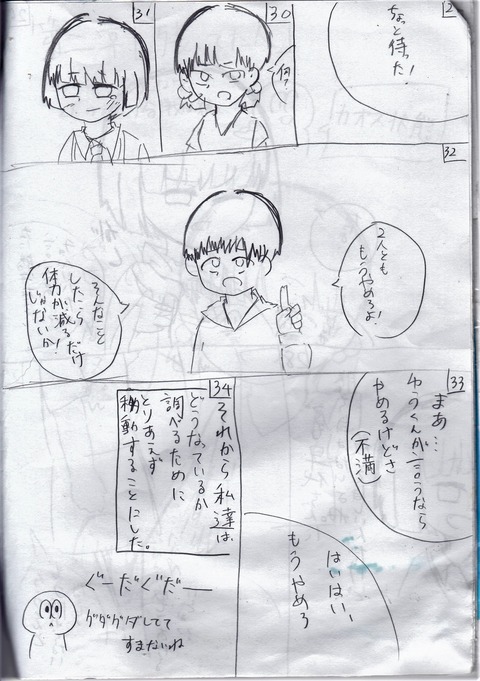 2
ちょっと
待った！
30
何？
31
32
2人とも
もうやめろよ！
そんなこと
したら
体力が減るだけ
じゃないか！
33
まあ…
ゆうくんが言うなら
やめるけどさ
(不満)
はいはい、
もうやめろ
34
それから私達は
どうなっているか
調べるために
とりあえず
移動することにした。
ぐーだぐだー
グダグダしてて
すまないね